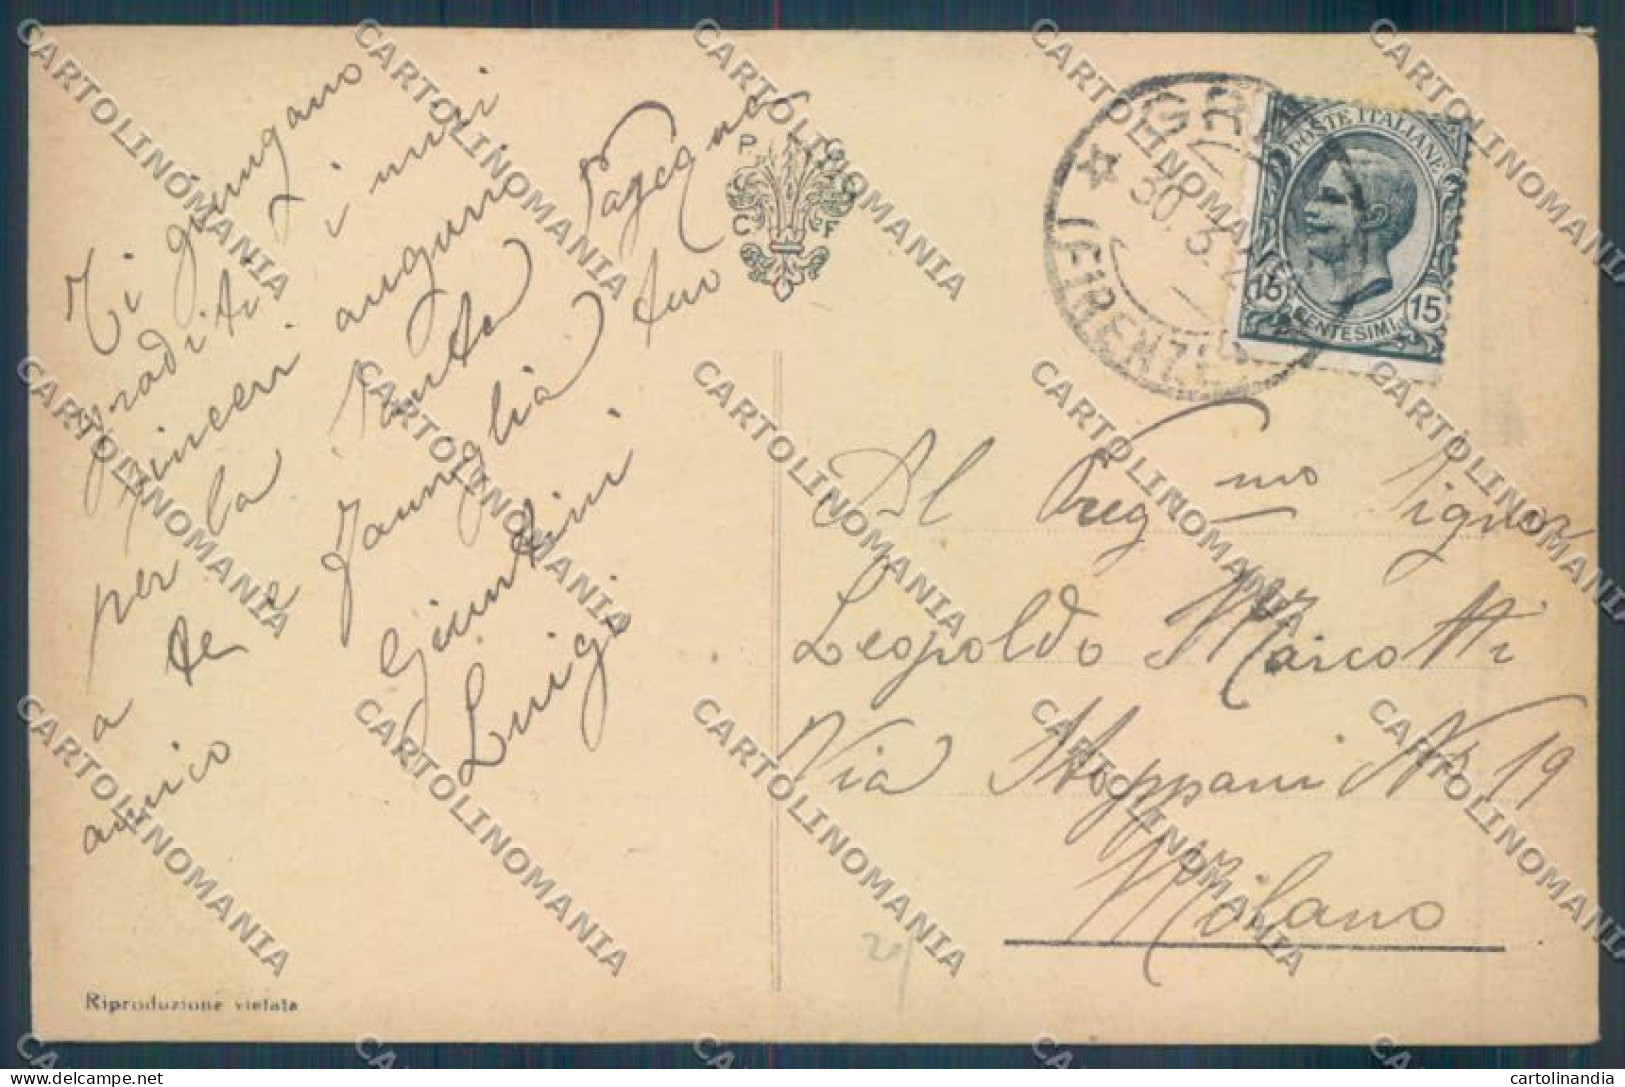 Ti giungano
graditi i miei
sinceri auguri
per la Santa Pasqua
a te e famiglia tuo
amico Giuntini
Luigi
P
C F
GR
30. 3. 2
(FIRENZE)
POSTE ITALIANE
15 CENTESIMI 15
Al Preg.mo Signor
Leopoldo Marcotti
Via Stoppani N° 19
Milano
Riproduzione vietata
CARTOLINOMANIA
delcampe.net
cartolinandia